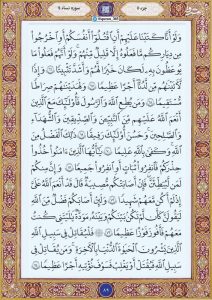 جزء ٥
سورة نساء ٤
وَلَوْ أَنَّا كَتَبْنَا عَلَيْهِمْ أَنِ اقْتُلُوا أَنْفُسَكُمْ أَوِ اخْرُجُوا
مِنْ دِيَارِكُمْ مَا فَعَلُوهُ إِلَّا قَلِيلٌ مِنْهُمْ وَلَوْ أَنَّهُمْ فَعَلُوا مَا
يُوعَظُونَ بِهِ لَكَانَ خَيْرًا لَهُمْ وَأَشَدَّ تَثْبِيتًا ﴿٦٦﴾ وَإِذًا
لَآتَيْنَاهُمْ مِنْ لَدُنَّا أَجْرًا عَظِيمًا ﴿٦٧﴾ وَلَهَدَيْنَاهُمْ صِرَاطًا
مُسْتَقِيمًا ﴿٦٨﴾ وَمَنْ يُطِعِ اللَّهَ وَالرَّسُولَ فَأُولَئِكَ مَعَ الَّذِينَ
أَنْعَمَ اللَّهُ عَلَيْهِمْ مِنَ النَّبِيِّينَ وَالصِّدِّيقِينَ وَالشُّهَدَاءِ
وَالصَّالِحِينَ وَحَسُنَ أُولَئِكَ رَفِيقًا ﴿٦٩﴾ ذَلِكَ الْفَضْلُ مِنَ
اللَّهِ وَكَفَى بِاللَّهِ عَلِيمًا ﴿٧٠﴾ يَا أَيُّهَا الَّذِينَ آمَنُوا خُذُوا
حِذْرَكُمْ فَانْفِرُوا ثُبَاتٍ أَوِ انْفِرُوا جَمِيعًا ﴿٧١﴾ وَإِنَّ مِنْكُمْ
لَمَنْ لَيُبَطِّئَنَّ فَإِنْ أَصَابَتْكُمْ مُصِيبَةٌ قَالَ قَدْ أَنْعَمَ اللَّهُ عَلَيَّ
إِذْ لَمْ أَكُنْ مَعَهُمْ شَهِيدًا ﴿٧٢﴾ وَلَئِنْ أَصَابَكُمْ فَضْلٌ مِنَ اللَّهِ
لَيَقُولَنَّ كَأَنْ لَمْ تَكُنْ بَيْنَكُمْ وَبَيْنَهُ مَوَدَّةٌ يَا لَيْتَنِي كُنْتُ
مَعَهُمْ فَأَفُوزَ فَوْزًا عَظِيمًا ﴿٧٣﴾ فَلْيُقَاتِلْ فِي سَبِيلِ اللَّهِ
الَّذِينَ يَشْرُونَ الْحَيَاةَ الدُّنْيَا بِالْآخِرَةِ وَمَنْ يُقَاتِلْ فِي
سَبِيلِ اللَّهِ فَيُقْتَلْ أَوْ يَغْلِبْ فَسَوْفَ نُؤْتِيهِ أَجْرًا عَظِيمًا ﴿٧٤﴾
٨٩